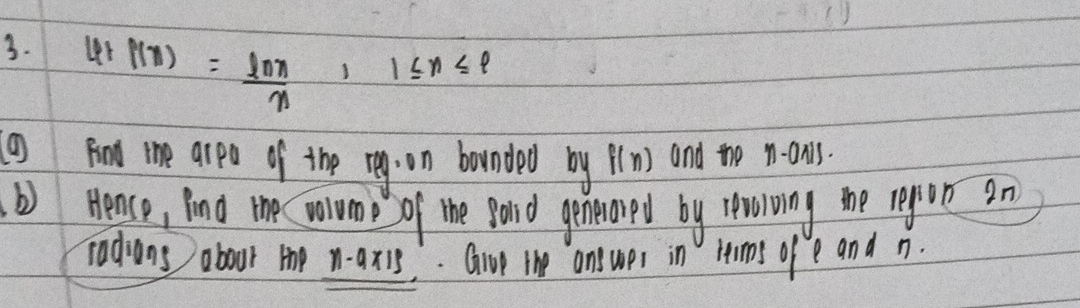 3. Let f(x) = ln x / x , 1 ≤ x ≤ e
(a) Find the area of the region bounded by f(x) and the x-axis.
(b) Hence, find the volume of the solid generated by revolving the region 2π
radians about the x-axis. Give the answer in terms of e and π.